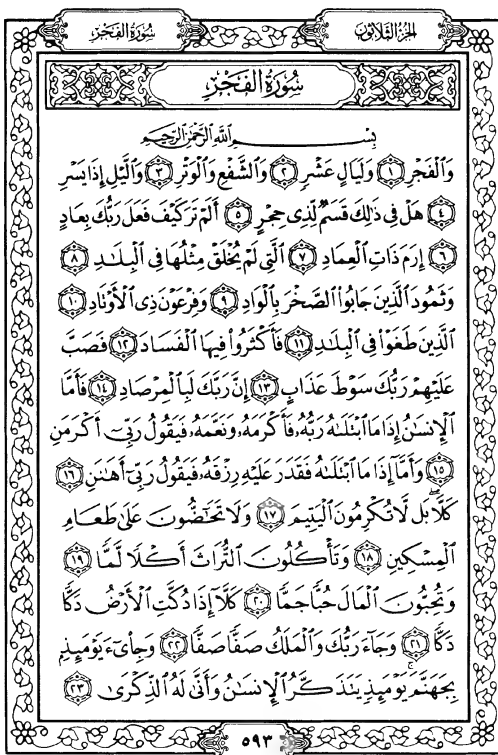 سُورَةُ الفَجْرِ
الجُزْءُ الثَّلَاثُونَ
سُورَةُ الفَجْرِ
بِسْمِ اللَّهِ الرَّحْمَٰنِ الرَّحِيمِ
وَالْفَجْرِ ١ وَلَيَالٍ عَشْرٍ ٢ وَالشَّفْعِ وَالْوَتْرِ ٣ وَاللَّيْلِ إِذَا يَسْرِ
٤ هَلْ فِي ذَٰلِكَ قَسَمٌ لِّذِي حِجْرٍ ٥ أَلَمْ تَرَ كَيْفَ فَعَلَ رَبُّكَ بِعَادٍ
٦ إِرَمَ ذَاتِ الْعِمَادِ ٧ الَّتِي لَمْ يُخْلَقْ مِثْلُهَا فِي الْبِلَادِ ٨
وَثَمُودَ الَّذِينَ جَابُوا الصَّخْرَ بِالْوَادِ ٩ وَفِرْعَوْنَ ذِي الْأَوْتَادِ ١٠
الَّذِينَ طَغَوْا فِي الْبِلَادِ ١١ فَأَكْثَرُوا فِيهَا الْفَسَادَ ١٢ فَصَبَّ
عَلَيْهِمْ رَبُّكَ سَوْطَ عَذَابٍ ١٣ إِنَّ رَبَّكَ لَبِالْمِرْصَادِ ١٤ فَأَمَّا
الْإِنسَٰنُ إِذَا مَا ابْتَلَىٰهُ رَبُّهُ فَأَكْرَمَهُ وَنَعَّمَهُ فَيَقُولُ رَبِّي أَكْرَمَنِ
١٥ وَأَمَّا إِذَا مَا ابْتَلَىٰهُ فَقَدَرَ عَلَيْهِ رِزْقَهُ فَيَقُولُ رَبِّي أَهَٰنَنِ ١٦
كَلَّا ۖ بَل لَّا تُكْرِمُونَ الْيَتِيمَ ١٧ وَلَا تَحَٰضُّونَ عَلَىٰ طَعَامِ
الْمِسْكِينِ ١٨ وَتَأْكُلُونَ التُّرَاثَ أَكْلًا لَّمًّا ١٩
وَتُحِبُّونَ الْمَالَ حُبًّا جَمًّا ٢٠ كَلَّا إِذَا دُكَّتِ الْأَرْضُ دَكًّا
دَكًّا ٢١ وَجَاءَ رَبُّكَ وَالْمَلَكُ صَفًّا صَفًّا ٢٢ وَجِايءَ يَوْمَئِذٍ
بِجَهَنَّمَ ۚ يَوْمَئِذٍ يَتَذَكَّرُ الْإِنسَٰنُ وَأَنَّىٰ لَهُ الذِّكْرَىٰ ٢٣
٥٩٣